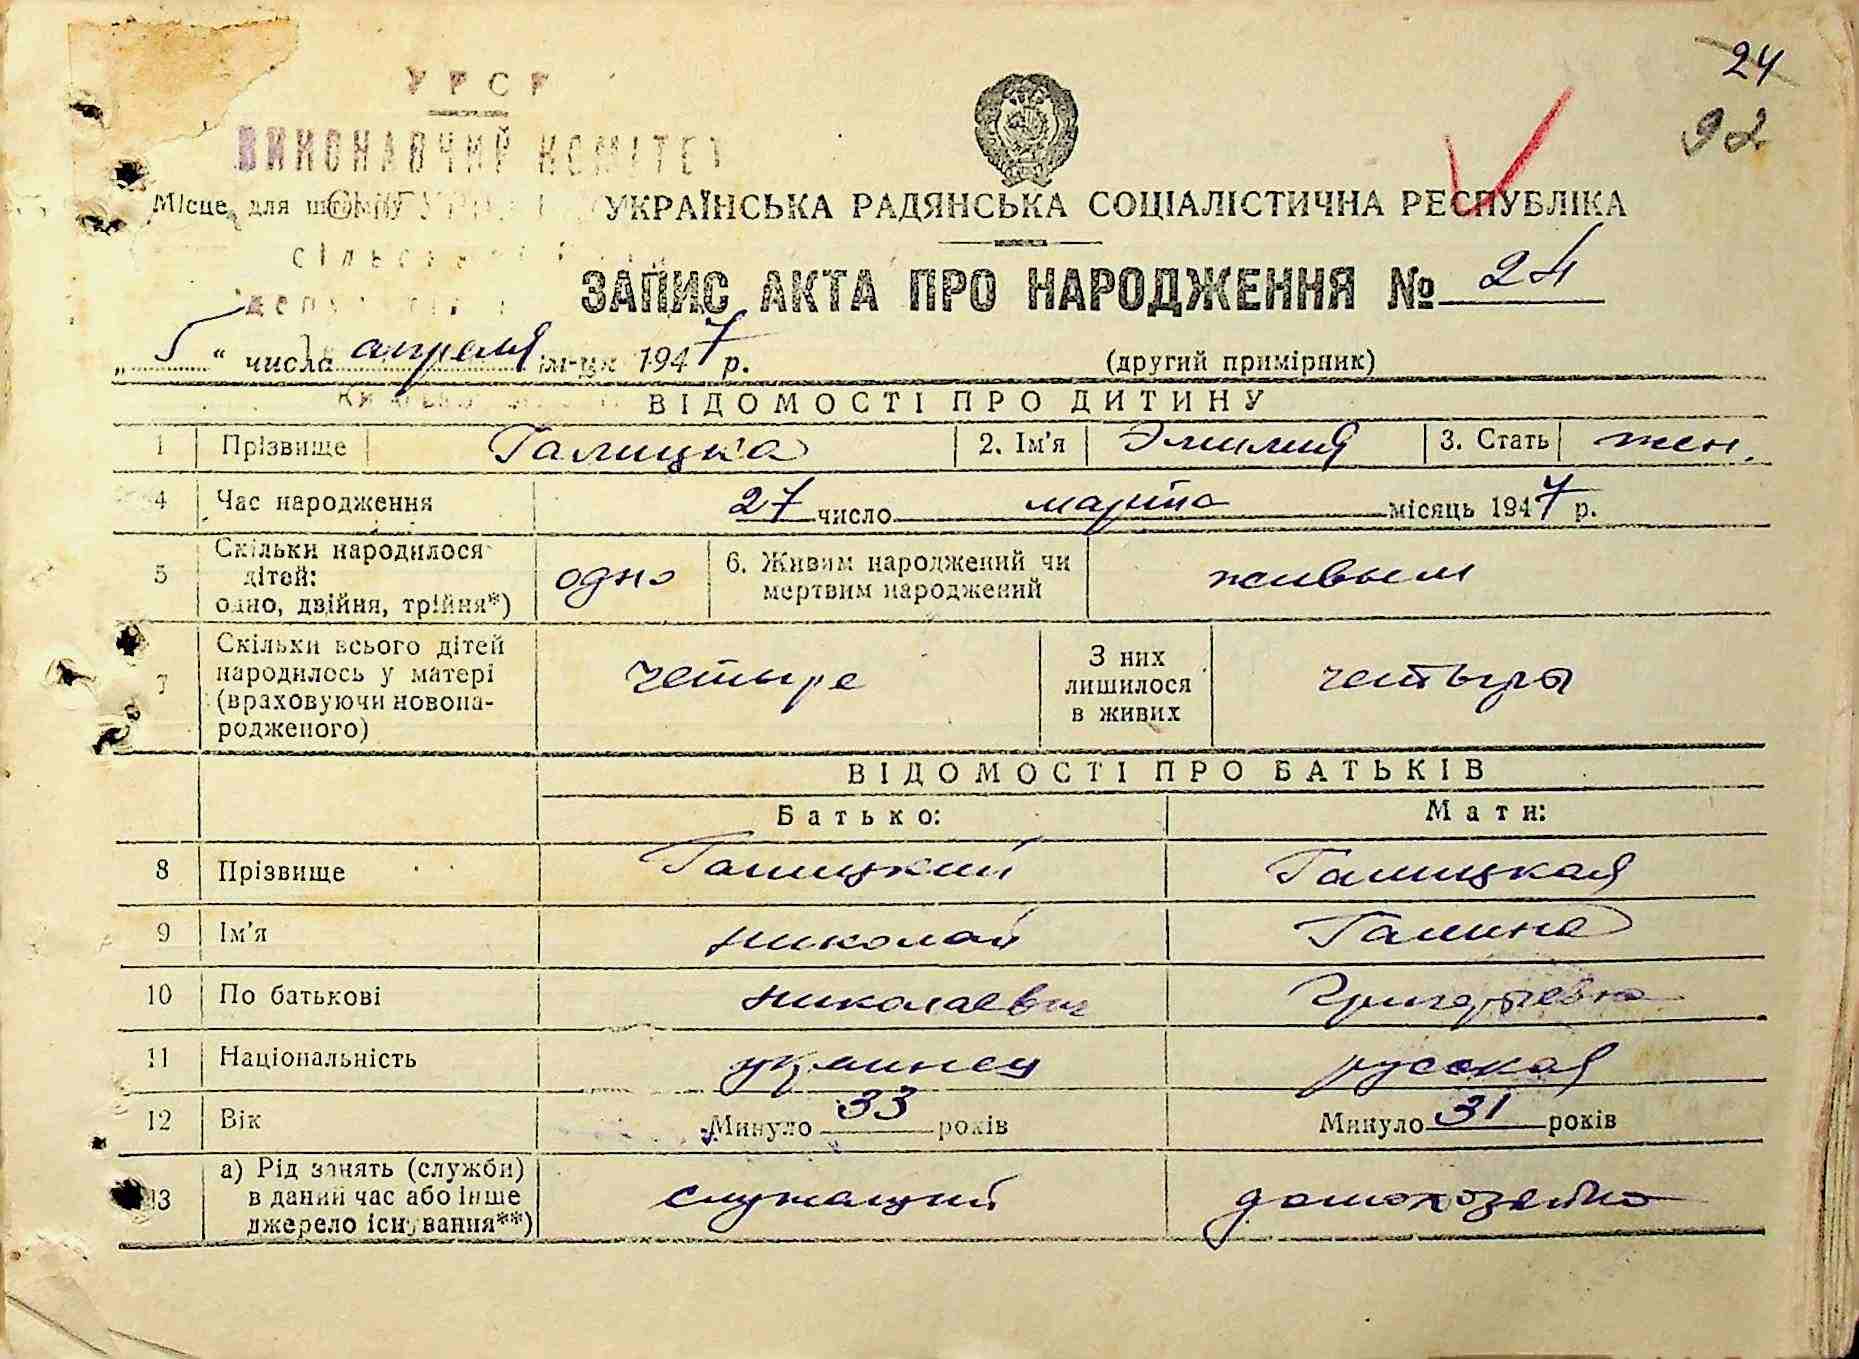 24
92
УРСР
ВИКОНАВЧИЙ КОМІТЕТ
Місце для штампу
УКРАЇНСЬКА РАДЯНСЬКА СОЦІАЛІСТИЧНА РЕСПУБЛІКА
ЗАПИС АКТА ПРО НАРОДЖЕННЯ № 24
„ 5 “ числа апреля м-ця 1947 р. (другий примірник)
ВІДОМОСТІ ПРО ДИТИНУ
1 Прізвище Галицка 2. Ім'я Эмилия 3. Стать жен.
4 Час народження 27 число марта місяць 1947 р.
5 Скільки народилося дітей: одно, двійня, трійня*) одно 6. Живим народжений чи мертвим народжений живым
7 Скільки всього дітей народилось у матері (враховуючи новонародженого) четыре З них лишилося в живих четыре
ВІДОМОСТІ ПРО БАТЬКІВ
Батько: Мати:
8 Прізвище Галицкий Галицкая
9 Ім'я Николай Галина
10 По батькові Николаевич Григорьевна
11 Національність украинец русская
12 Вік Минуло 33 років Минуло 31 років
13 а) Рід занять (служби) в даний час або інше джерело існування**) служащий домохозяйка